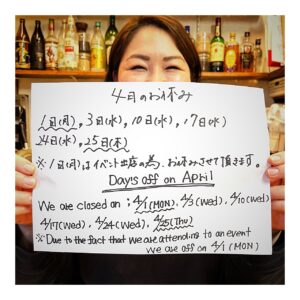 4月のお休み
1日(月),3日(水),10日(水),17日(水)
24日(水),25日(木)
※1日(月)はイベント出店の為、お休みさせて頂きます。
Day's off on April
We are closed on ; 4/1(MON), 4/3(Wed), 4/10(Wed)
4/17(Wed), 4/24(Wed), 4/25(Thu)
※Due to the fact that we are attending to an event
we are off on 4/1 (MON)